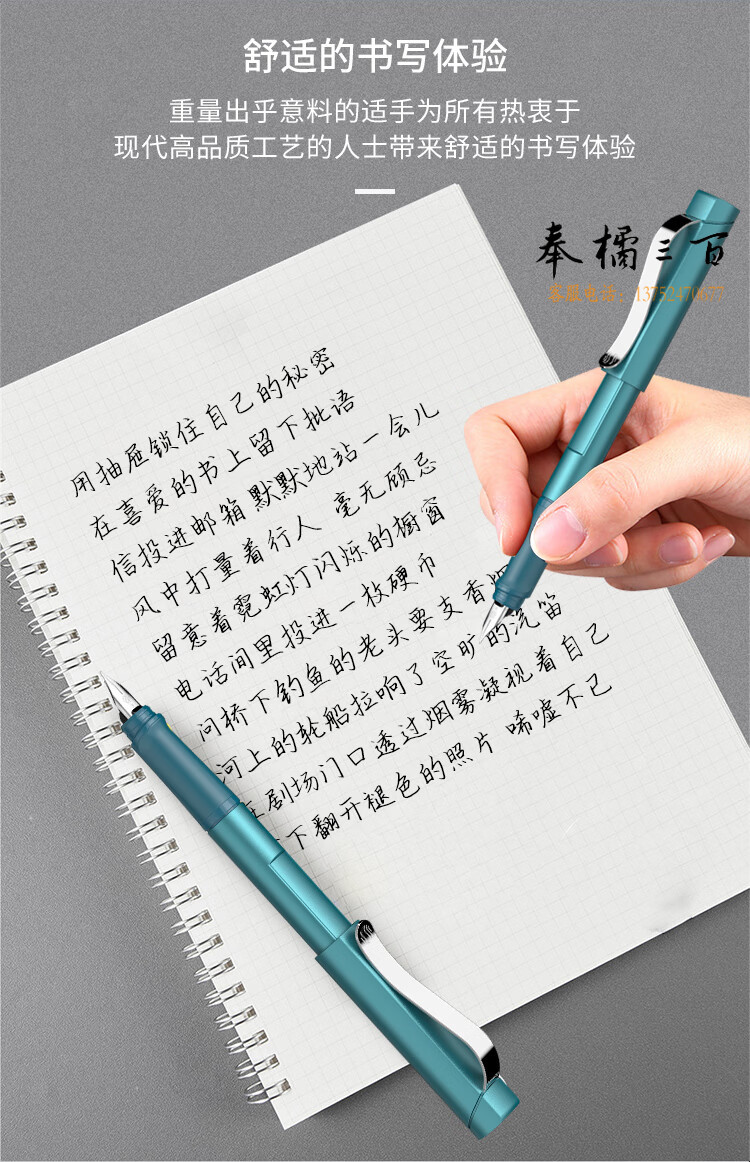 舒适的书写体验
重量出乎意料的适手为所有热衷于
现代高品质工艺的人士带来舒适的书写体验
奉橘三百
客服电话：13752470677
用抽屉锁住自己的秘密
在喜爱的书上留下批语
信投进邮箱 默默地站一会儿
风中打量着行人 毫无顾忌
留意着霓虹灯闪烁的橱窗
电话间里投进一枚硬币
问桥下钓鱼的老头要支香烟
河上的轮船拉响了空旷的汽笛
在剧场门口透过烟雾凝视着自己
下翻开褪色的照片 唏嘘不已